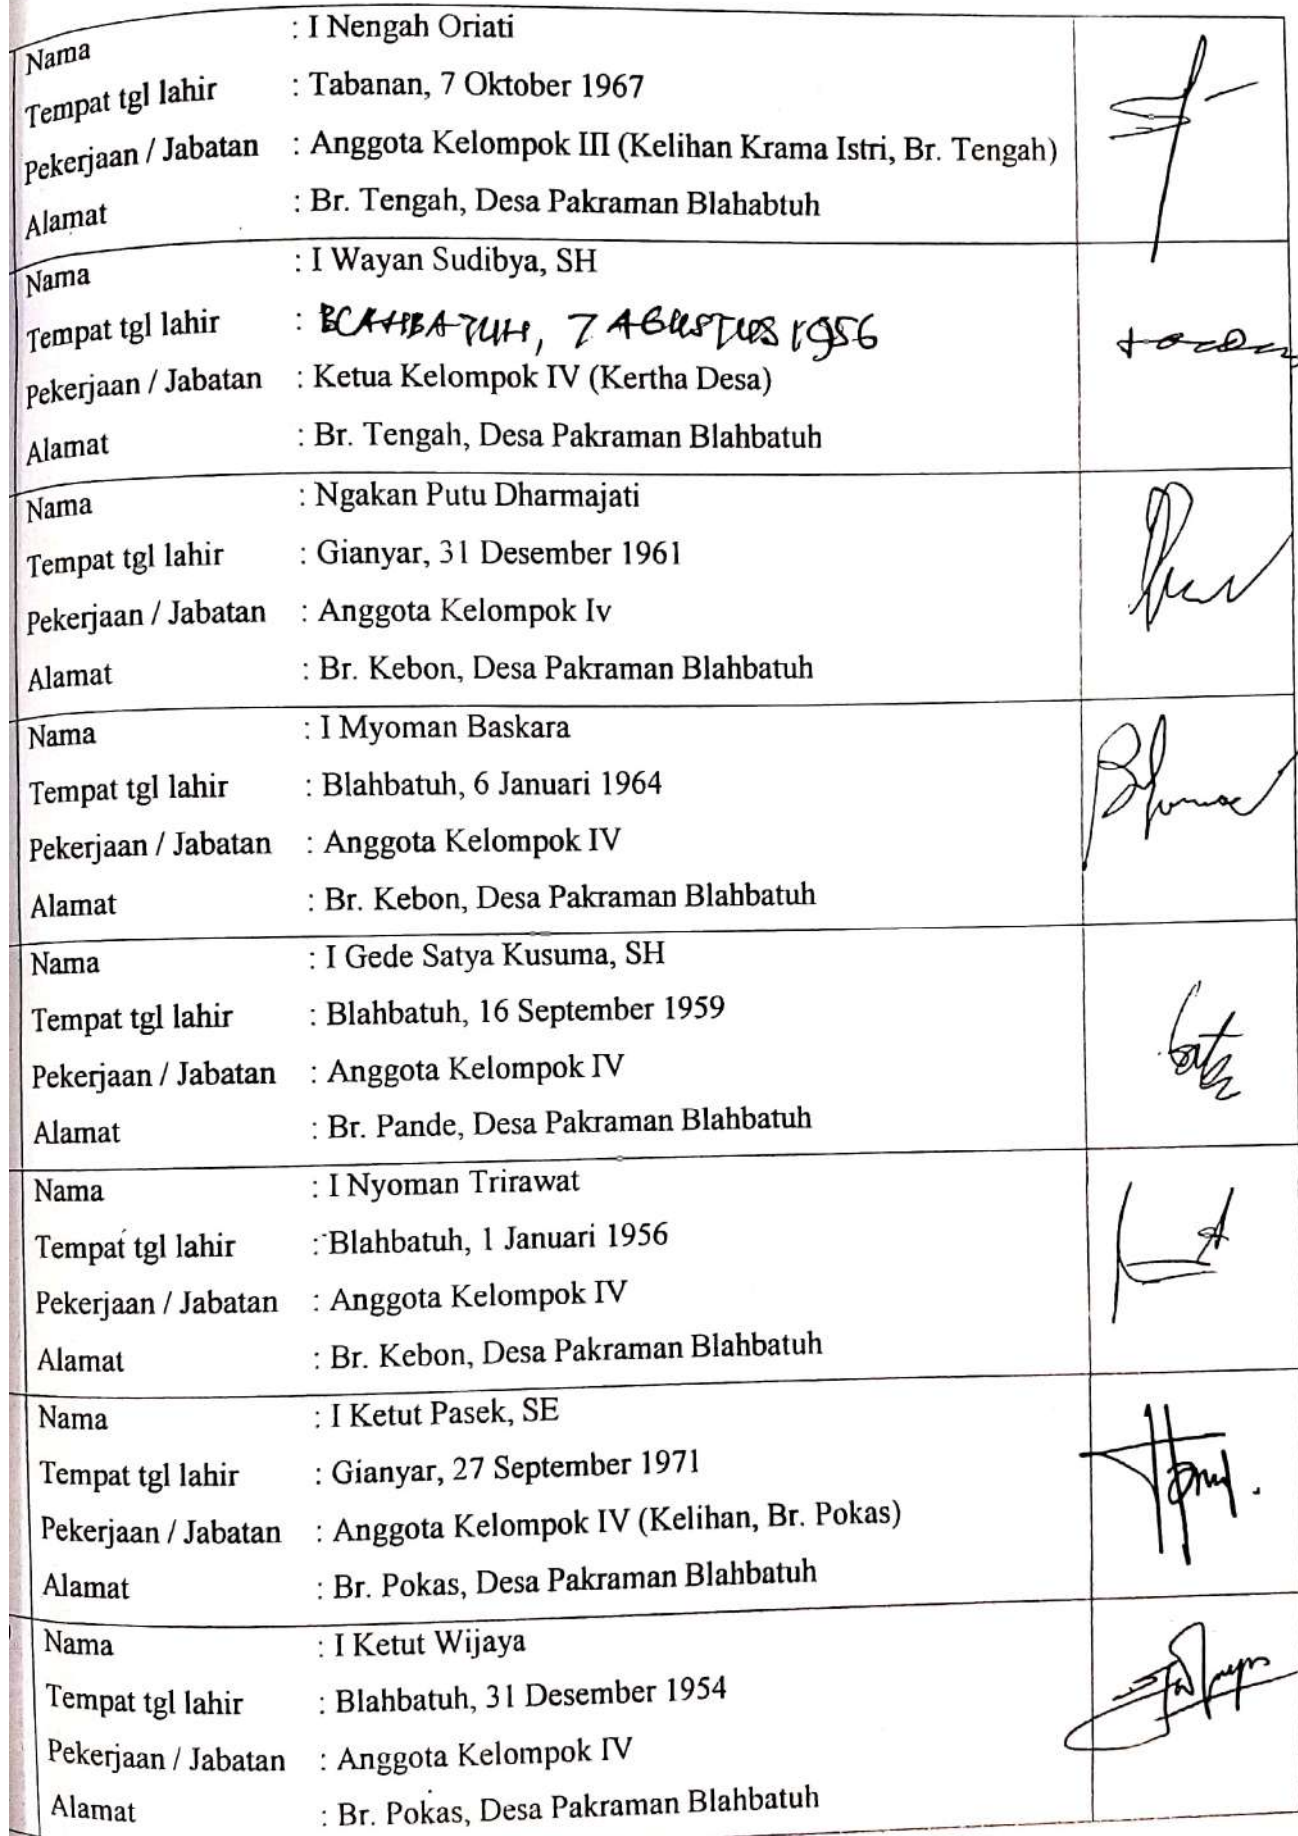 Nama : I Nengah Oriati
Tempat tgl lahir : Tabanan, 7 Oktober 1967
Pekerjaan / Jabatan : Anggota Kelompok III (Kelihan Krama Istri, Br. Tengah)
Alamat : Br. Tengah, Desa Pakraman Blahabtuh
Nama : I Wayan Sudibya, SH
Tempat tgl lahir : BLAHBATUH, 7 AGUSTUS 1956
Pekerjaan / Jabatan : Ketua Kelompok IV (Kertha Desa)
Alamat : Br. Tengah, Desa Pakraman Blahbatuh
Nama : Ngakan Putu Dharmajati
Tempat tgl lahir : Gianyar, 31 Desember 1961
Pekerjaan / Jabatan : Anggota Kelompok Iv
Alamat : Br. Kebon, Desa Pakraman Blahbatuh
Nama : I Myoman Baskara
Tempat tgl lahir : Blahbatuh, 6 Januari 1964
Pekerjaan / Jabatan : Anggota Kelompok IV
Alamat : Br. Kebon, Desa Pakraman Blahbatuh
Nama : I Gede Satya Kusuma, SH
Tempat tgl lahir : Blahbatuh, 16 September 1959
Pekerjaan / Jabatan : Anggota Kelompok IV
Alamat : Br. Pande, Desa Pakraman Blahbatuh
Nama : I Nyoman Trirawat
Tempat tgl lahir : Blahbatuh, 1 Januari 1956
Pekerjaan / Jabatan : Anggota Kelompok IV
Alamat : Br. Kebon, Desa Pakraman Blahbatuh
Nama : I Ketut Pasek, SE
Tempat tgl lahir : Gianyar, 27 September 1971
Pekerjaan / Jabatan : Anggota Kelompok IV (Kelihan, Br. Pokas)
Alamat : Br. Pokas, Desa Pakraman Blahbatuh
Nama : I Ketut Wijaya
Tempat tgl lahir : Blahbatuh, 31 Desember 1954
Pekerjaan / Jabatan : Anggota Kelompok IV
Alamat : Br. Pokas, Desa Pakraman Blahbatuh